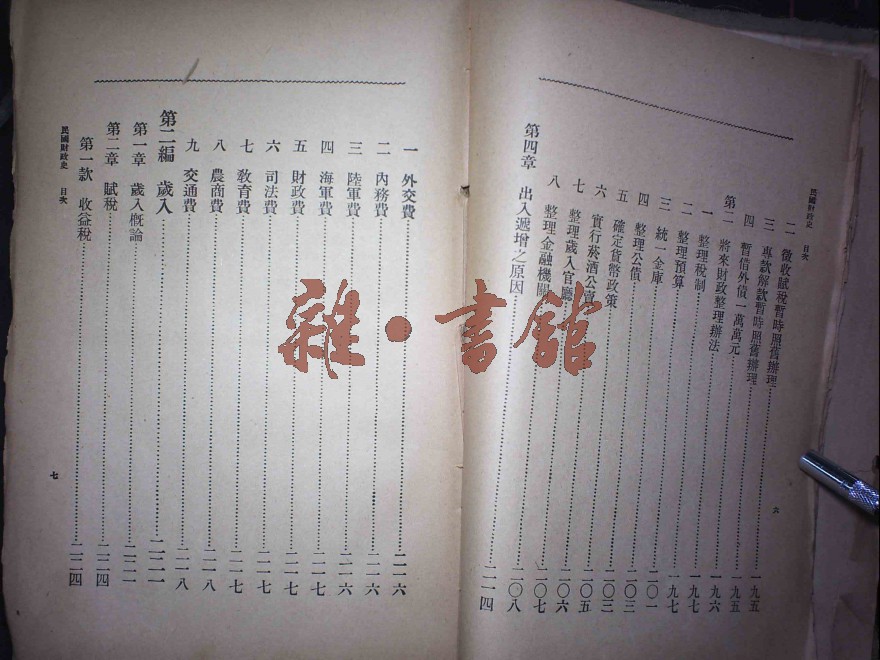 民國財政史 目次
二 徵收賦稅暫時照舊辦理……一九五
三 專款解款暫時照舊辦理……一九五
四 暫借外債一萬萬元……一九六
第二 將來財政整理辦法……一九七
一 整理稅制……一九七
二 整理預算……二〇一
三 統一金庫……二〇三
四 整理公債……二〇三
五 確定貨幣政策……二〇五
六 實行菸酒公賣……二〇六
七 整理歲入官廳……二〇七
八 整理金融機關……二〇八
第四章 出入遞增之原因……二一四
六
一 外交費……二一六
二 內務費……二一六
三 陸軍費……二一六
四 海軍費……二一七
五 財政費……二一七
六 司法費……二一七
七 敎育費……二一七
八 農商費……二一八
九 交通費……二一八
第二編 歲入……二二一
第一章 歲入槪論……二二一
第二章 賦稅……二二四
第一款 收益稅……二二四
民國財政史 目次
七
雜·書館